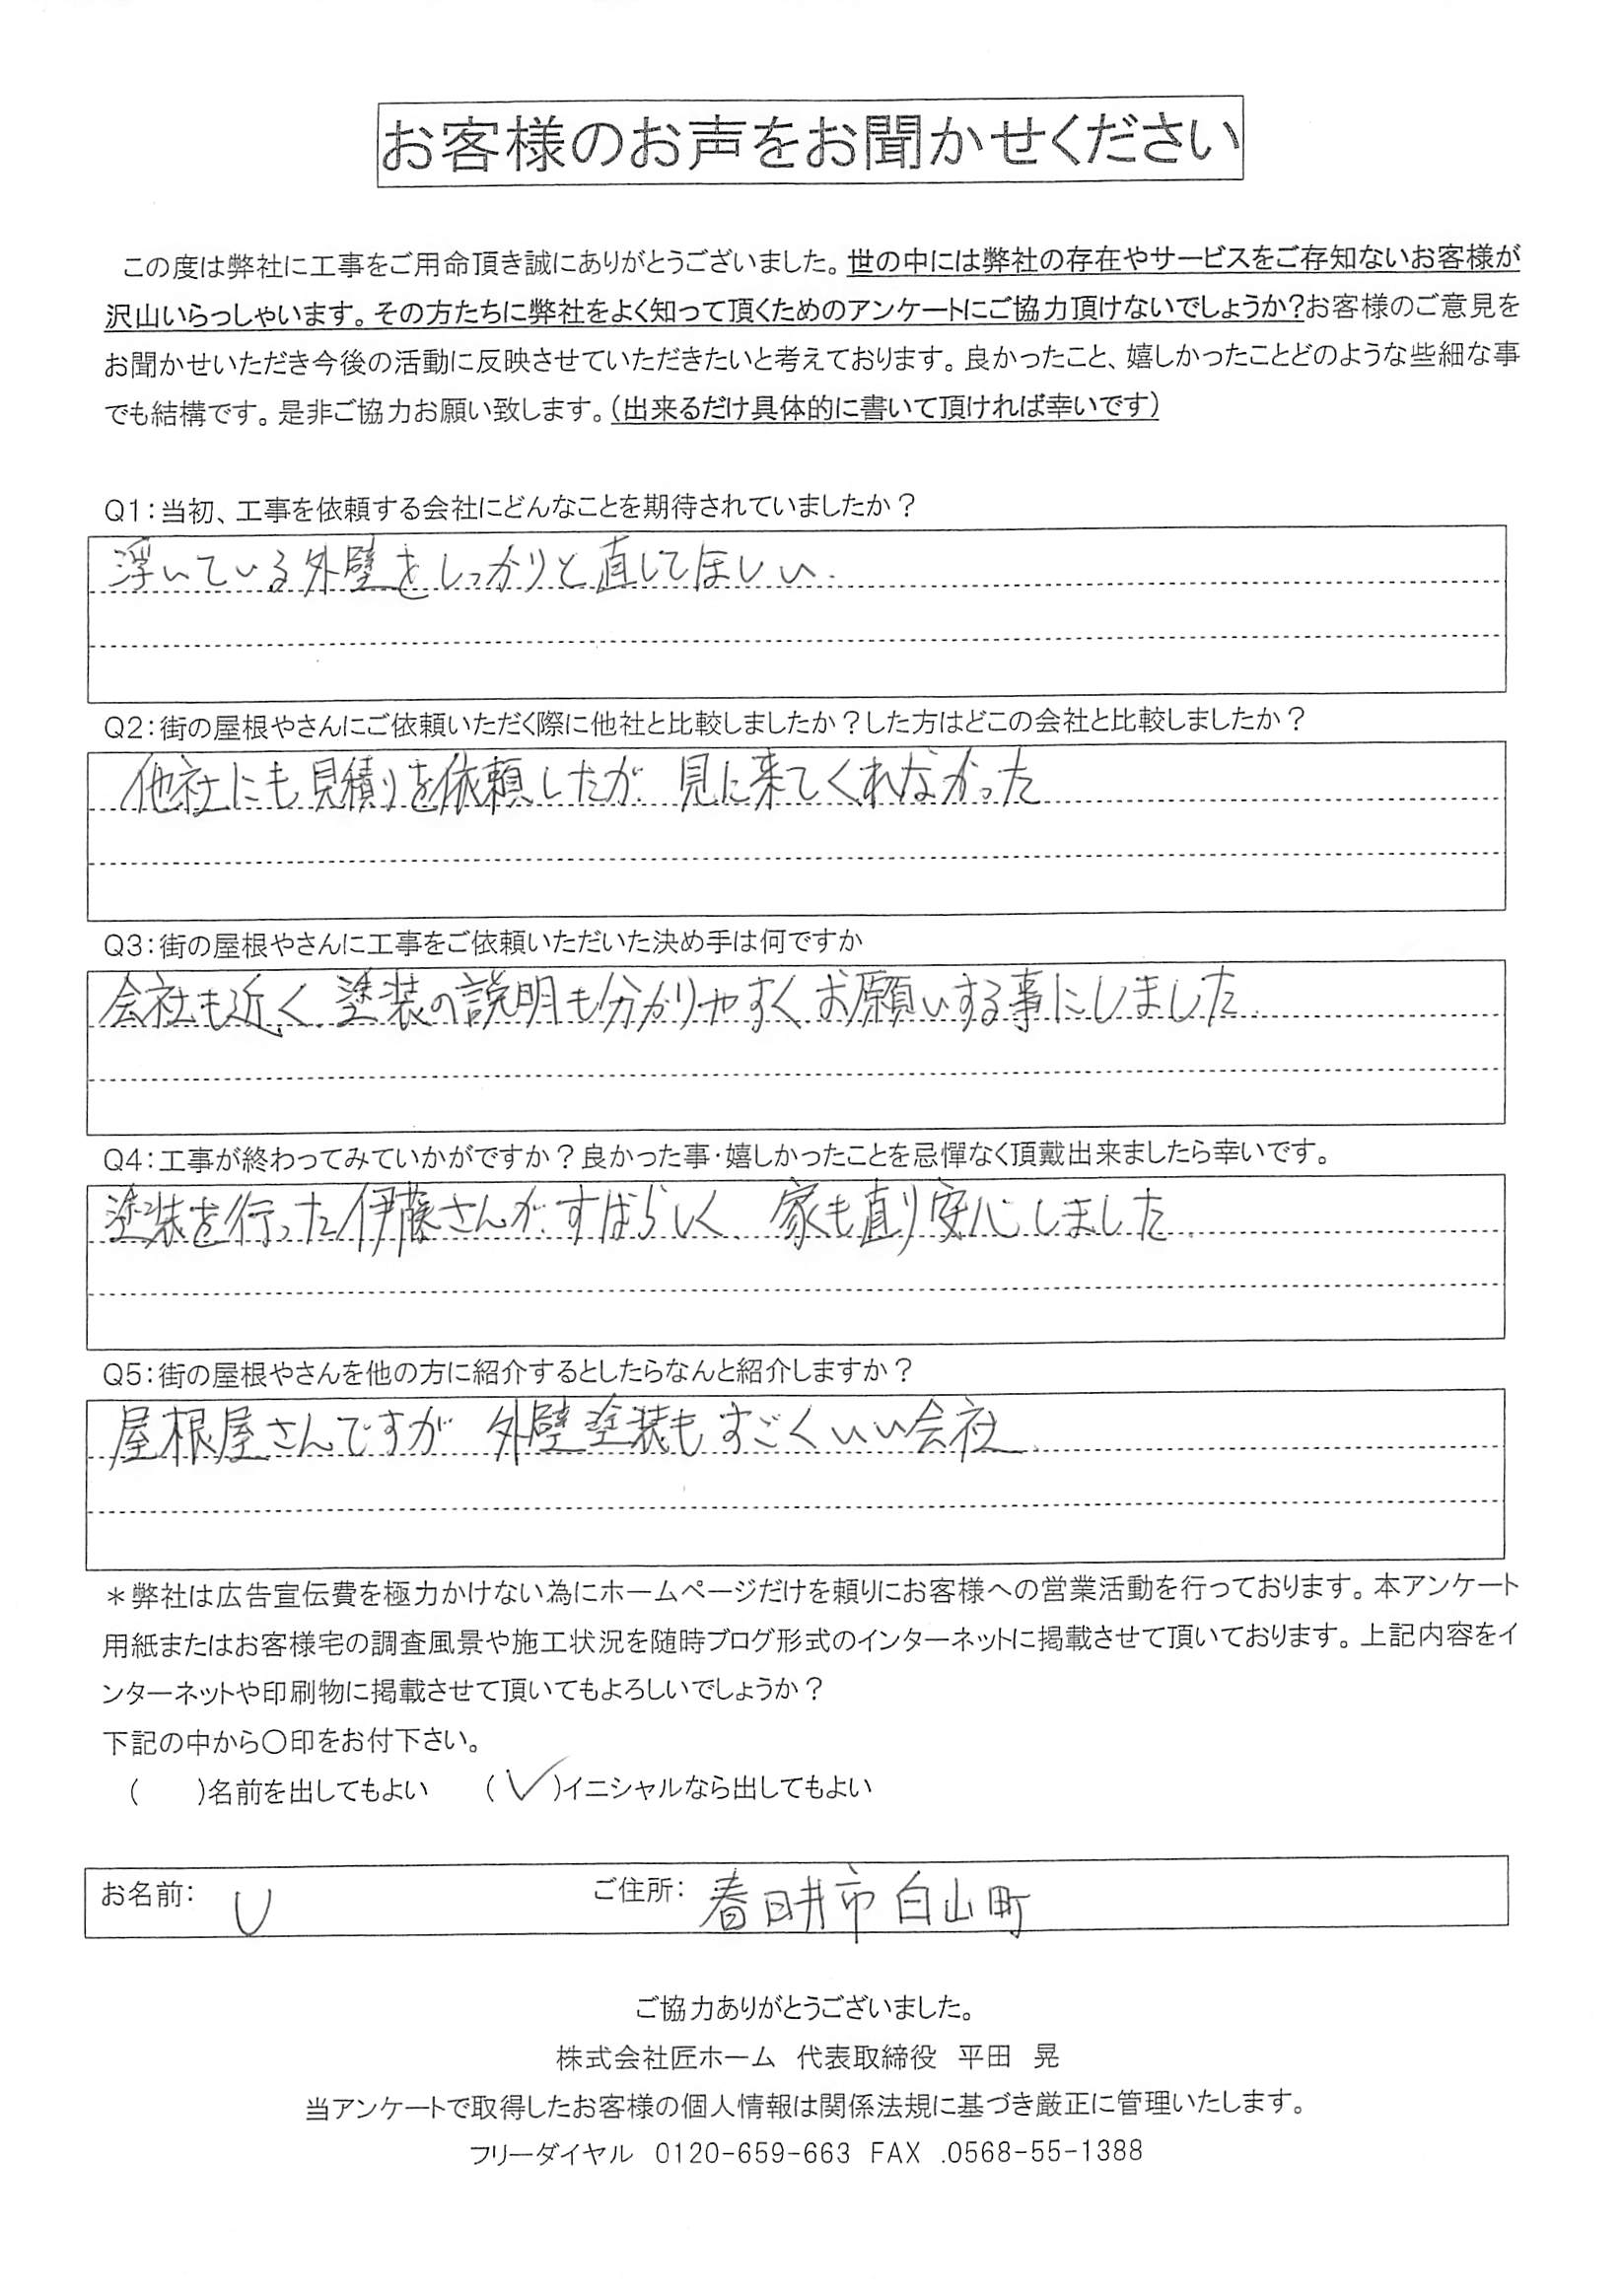 お客様のお声をお聞かせください
この度は弊社に工事をご用命頂き誠にありがとうございました。世の中には弊社の存在やサービスをご存知ないお客様が
沢山いらっしゃいます。その方たちに弊社をよく知って頂くためのアンケートにご協力頂けないでしょうか?お客様のご意見を
お聞かせいただき今後の活動に反映させていただきたいと考えております。良かったこと、嬉しかったことどのような些細な事
でも結構です。是非ご協力お願い致します。(出来るだけ具体的に書いて頂ければ幸いです)
Q1:当初、工事を依頼する会社にどんなことを期待されていましたか?
浮いている外壁をしっかりと直してほしい.
Q2:街の屋根やさんにご依頼いただく際に他社と比較しましたか?した方はどこの会社と比較しましたか?
他社にも見積りを依頼したが 見に来てくれなかった
Q3:街の屋根やさんに工事をご依頼いただいた決め手は何ですか
会社も近く、塗装の説明も分かりやすく お願いする事にしました.
Q4:工事が終わってみていかがですか?良かった事・嬉しかったことを忌憚なく頂戴出来ましたら幸いです。
塗装を行った伊藤さんが すばらしく、家も直り安心しました.
Q5:街の屋根やさんを他の方に紹介するとしたらなんと紹介しますか?
屋根屋さんですが 外壁塗装もすごくいい会社
*弊社は広告宣伝費を極力かけない為にホームページだけを頼りにお客様への営業活動を行っております。本アンケート
用紙またはお客様宅の調査風景や施工状況を随時ブログ形式のインターネットに掲載させて頂いております。上記内容をイ
ンターネットや印刷物に掲載させて頂いてもよろしいでしょうか?
下記の中から〇印をお付下さい。
( )名前を出してもよい (✓)イニシャルなら出してもよい
お名前: U ご住所: 春日井市白山町
ご協力ありがとうございました。
株式会社匠ホーム 代表取締役 平田 晃
当アンケートで取得したお客様の個人情報は関係法規に基づき厳正に管理いたします。
フリーダイヤル 0120-659-663 FAX .0568-55-1388